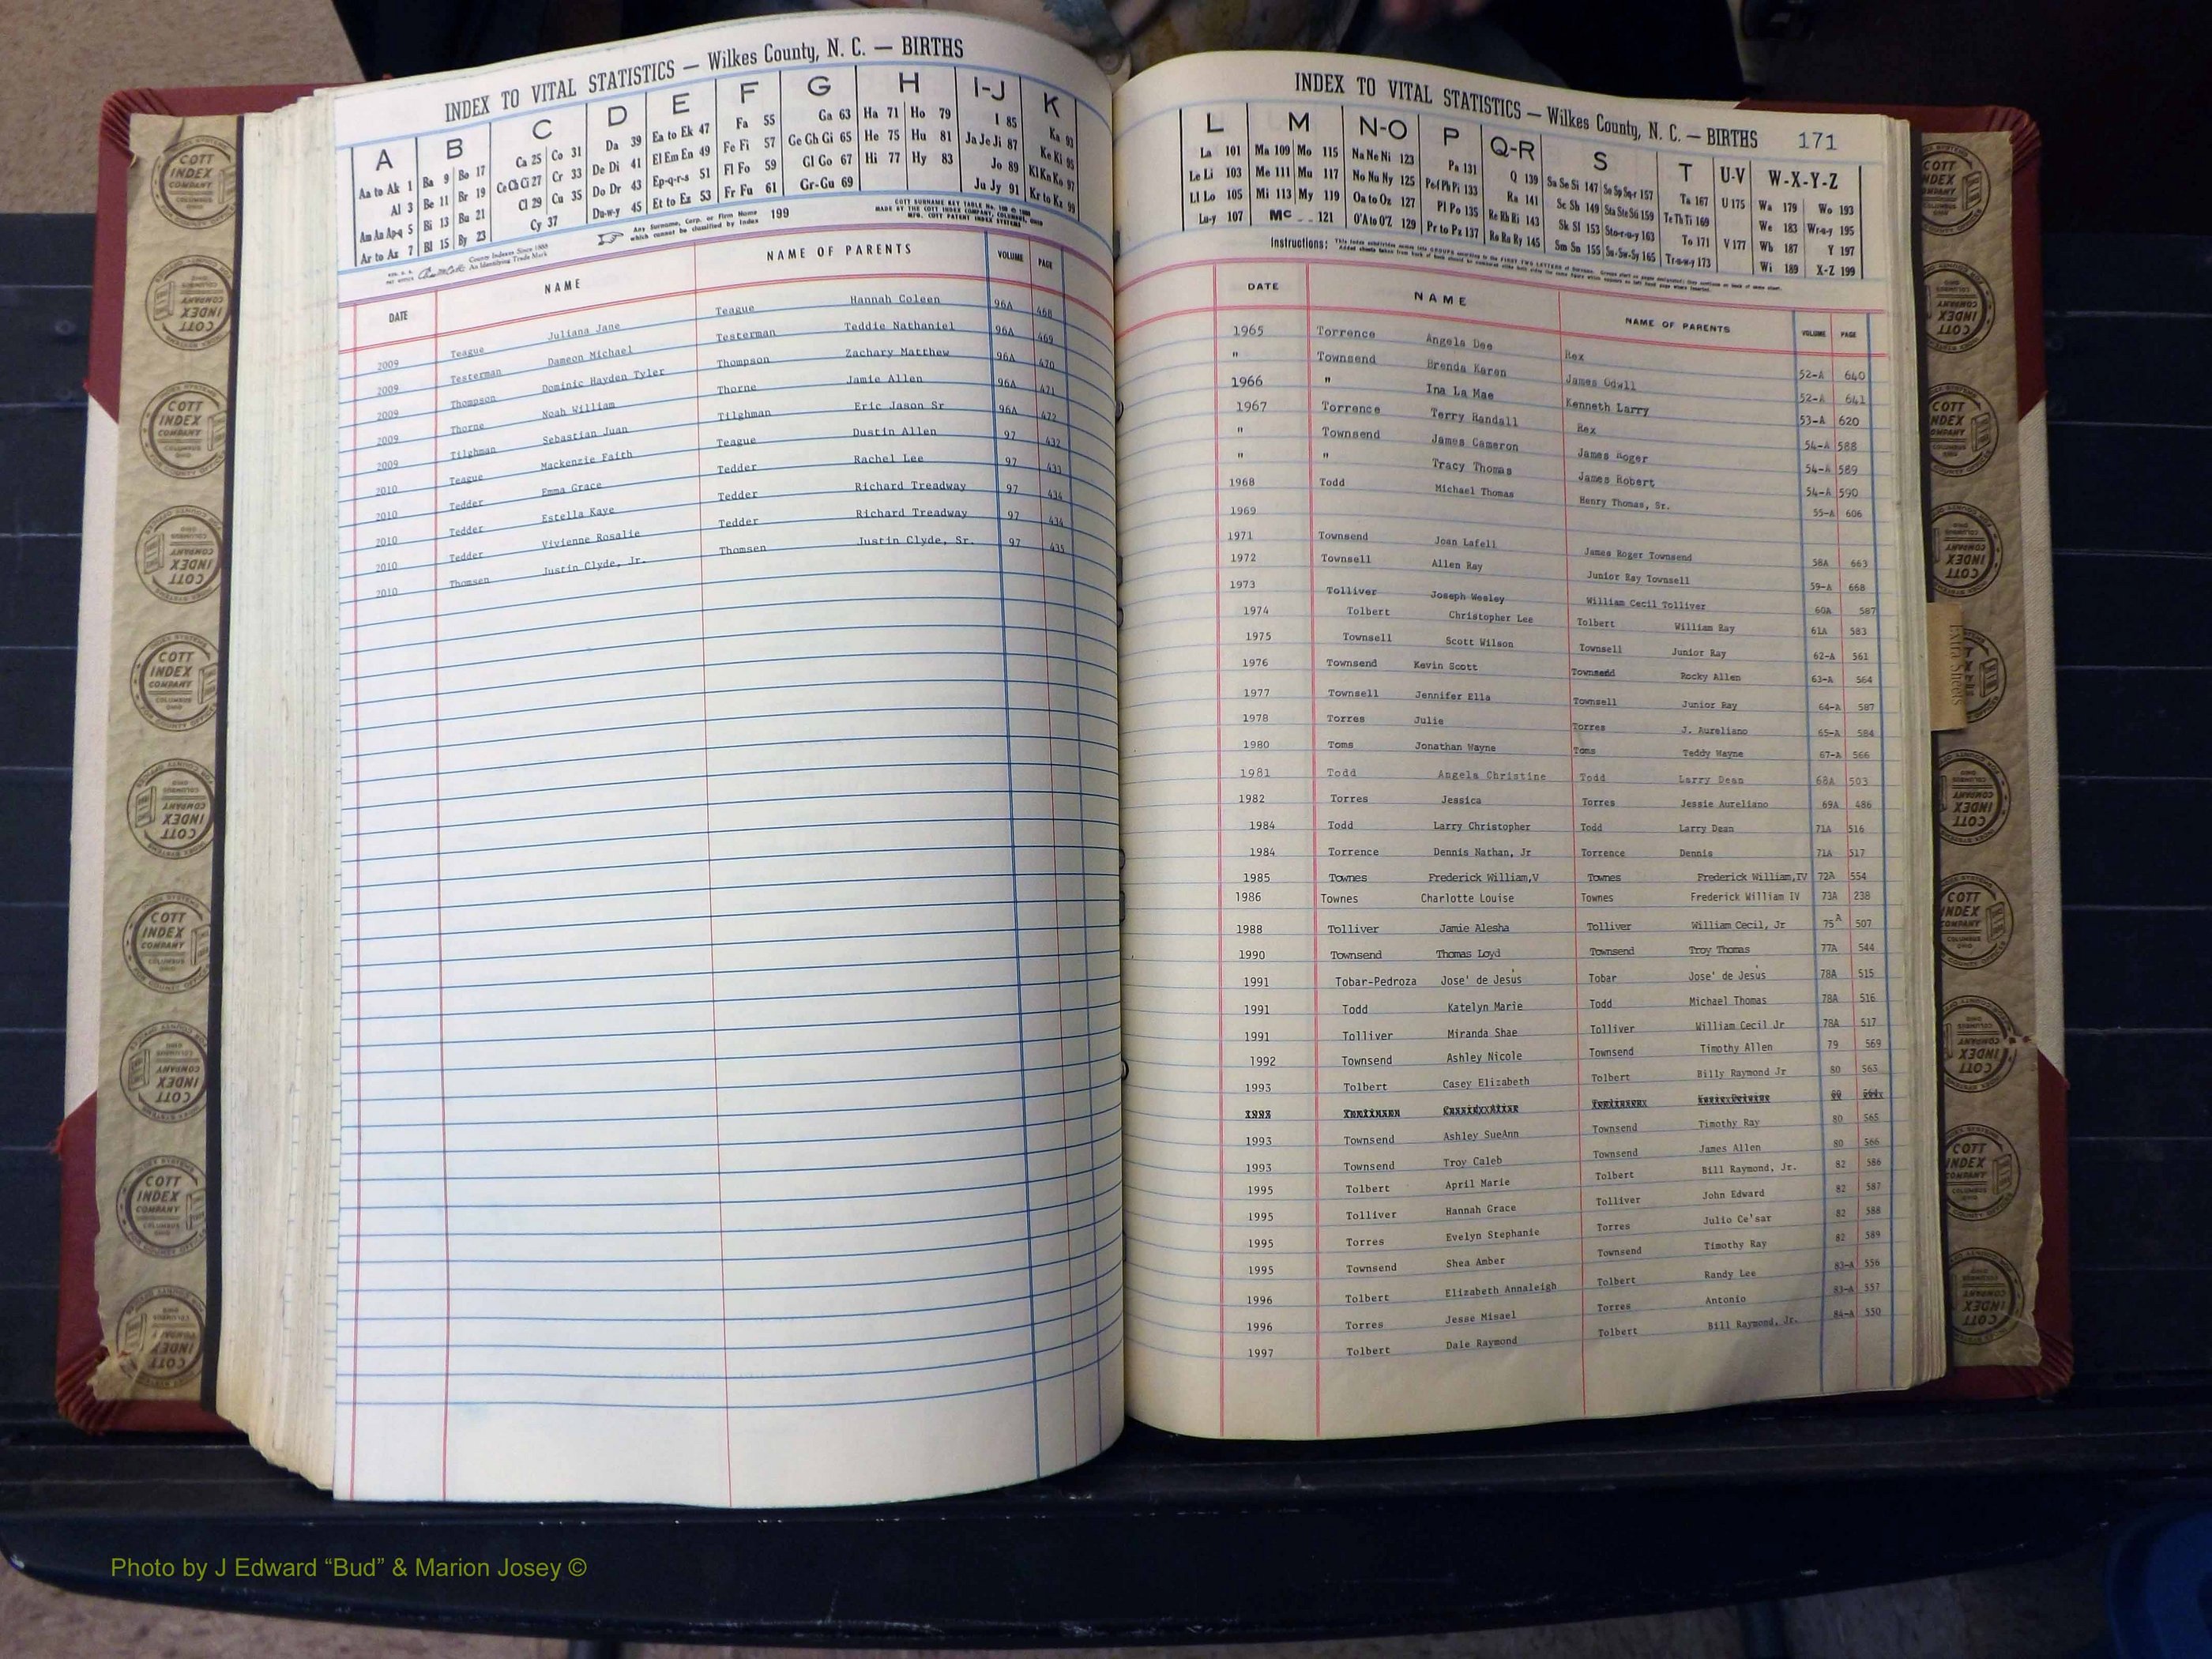 INDEX TO VITAL STATISTICS — Wilkes County, N. C. — BIRTHS
A B C D E F G H I-J K
Aa to Ak 1 Ba 9 Bo 17 Ca 25 Co 31 Da 39 Ea to Ek 47 Fa 55 Ga 63 Ha 71 Ho 79 I 85 Ka 93
Al 3 Be 11 Br 19 Ce Ch Ci 27 Cr 33 De Di 41 El Em En 49 Fe Fi 57 Ge Gh Gi 65 He 75 Hu 81 Ja Je Ji 87 Ke Ki 95
Am An Ap-q 5 Bi 13 Bu 21 Cl 29 Cu 35 Do Dr 43 Ep-q-r-s 51 Fl Fo 59 Gl Go 67 Hi 77 Hy 83 Jo 89 Kl Kn Ko 97
Ar to Az 7 Bl 15 By 23 Cy 37 Du-w-y 45 Et to Ez 53 Fr Fu 61 Gr-Gu 69 Ju Jy 91 Kr to Kz 99
County Indexes Since 1888
An Identifying Trade Mark
Any Surname, Corp. or Firm Name
which cannot be classified by Index 199
MADE BY THE COTT INDEX COMPANY, COLUMBUS, OHIO
MFG. COTT PATENT INDEX SYSTEMS
DATE NAME NAME OF PARENTS VOLUME PAGE
2009 Teague Juliana Jane Teague Hannah Coleen 96A 468
2009 Testerman Dameon Michael Testerman Teddie Nathaniel 96A 469
2009 Thompson Dominic Hayden Tyler Thompson Zachary Matthew 96A 470
2009 Thorne Noah William Thorne Jamie Allen 96A 471
2009 Tilghman Sebastian Juan Tilghman Eric Jason Sr 96A 472
2010 Teague Mackenzie Faith Teague Dustin Allen 97 432
2010 Tedder Emma Grace Tedder Rachel Lee 97 433
2010 Tedder Estella Kaye Tedder Richard Treadway 97 434
2010 Tedder Vivienne Rosalie Tedder Richard Treadway 97 434
2010 Thomsen Justin Clyde, Jr. Thomsen Justin Clyde, Sr. 97 435
INDEX TO VITAL STATISTICS — Wilkes County, N. C. — BIRTHS 171
L M N-O P Q-R S T U-V W-X-Y-Z
La 101 Ma 109 Mo 115 Na Ne Ni 123 Pa 131 Q 139 Sa Se Si 147 Sn Sp Sq-r 157 Ta 167 U 175 Wa 179 Wo 193
Le Li 103 Me 111 Mu 117 No Nu Ny 125 Pe-f Ph Pi 133 Ra 141 Sc Sh 149 Sta Ste Sti 159 Te Th Ti 169 We 183 Wr-u-y 195
Ll Lo 105 Mi 113 My 119 Oa to Oz 127 Pl Po 135 Re Rh Ri 143 Sk Sl 153 Sto-r-u-y 163 To 171 V 177 Wh 187 Y 197
Lu-y 107 Mc 121 O'A to O'Z 129 Pr to Pz 137 Ro Ru Ry 145 Sm So 155 Su-Sw-Sy 165 Tr-u-w-y 173 Wi 189 X-Z 199
Instructions:
DATE NAME NAME OF PARENTS VOLUME PAGE
1965 Torrence Angela Dee Rex 52-A 640
" Townsend Brenda Karen James Odwll 52-A 641
1966 " Ina La Mae Kenneth Larry 53-A 620
1967 Torrence Terry Randall Rex 54-A 588
" Townsend James Cameron James Roger 54-A 589
" " Tracy Thomas James Robert 54-A 590
1968 Todd Michael Thomas Henry Thomas, Sr. 55-A 606
1969
1971 Townsend Joan Lafell James Roger Townsend 58A 663
1972 Townsell Allen Ray Junior Ray Townsell 59-A 668
1973 Tolliver Joseph Wesley William Cecil Tolliver 60A 587
1974 Tolbert Christopher Lee Tolbert William Ray 61A 583
1975 Townsell Scott Wilson Townsell Junior Ray 62-A 561
1976 Townsend Kevin Scott Townsend Rocky Allen 63-A 564
1977 Townsell Jennifer Ella Townsell Junior Ray 64-A 587
1978 Torres Julie Torres J. Aureliano 65-A 584
1980 Toms Jonathan Wayne Toms Teddy Wayne 67-A 566
1981 Todd Angela Christine Todd Larry Dean 68A 503
1982 Torres Jessica Torres Jessie Aureliano 69A 486
1984 Todd Larry Christopher Todd Larry Dean 71A 516
1984 Torrence Dennis Nathan, Jr Torrence Dennis 71A 517
1985 Townes Frederick William,V Townes Frederick William,IV 72A 554
1986 Townes Charlotte Louise Townes Frederick William IV 73A 238
1988 Tolliver Jamie Alesha Tolliver William Cecil, Jr 75A 507
1990 Townsend Thomas Loyd Townsend Troy Thomas 77A 544
1991 Tobar-Pedroza Jose' de Jesus Tobar Jose' de Jesus 78A 515
1991 Todd Katelyn Marie Todd Michael Thomas 78A 516
1991 Tolliver Miranda Shae Tolliver William Cecil Jr 78A 517
1992 Townsend Ashley Nicole Townsend Timothy Allen 79 569
1993 Tolbert Casey Elizabeth Tolbert Billy Raymond Jr 80 563
1993 Townsend Ashley SueAnn Townsend Timothy Ray 80 565
1993 Townsend Troy Caleb Townsend James Allen 80 566
1995 Tolbert April Marie Tolbert Bill Raymond, Jr. 82 586
1995 Tolliver Hannah Grace Tolliver John Edward 82 587
1995 Torres Evelyn Stephanie Torres Julio Ce'sar 82 588
1995 Townsend Shea Amber Townsend Timothy Ray 82 589
1996 Tolbert Elizabeth Annaleigh Tolbert Randy Lee 83-A 556
1996 Torres Jesse Misael Torres Antonio 83-A 557
1997 Tolbert Dale Raymond Tolbert Bill Raymond, Jr. 84-A 550
Extra Sheets
COTT INDEX COMPANY COLUMBUS OHIO
Photo by J Edward “Bud” & Marion Josey ©